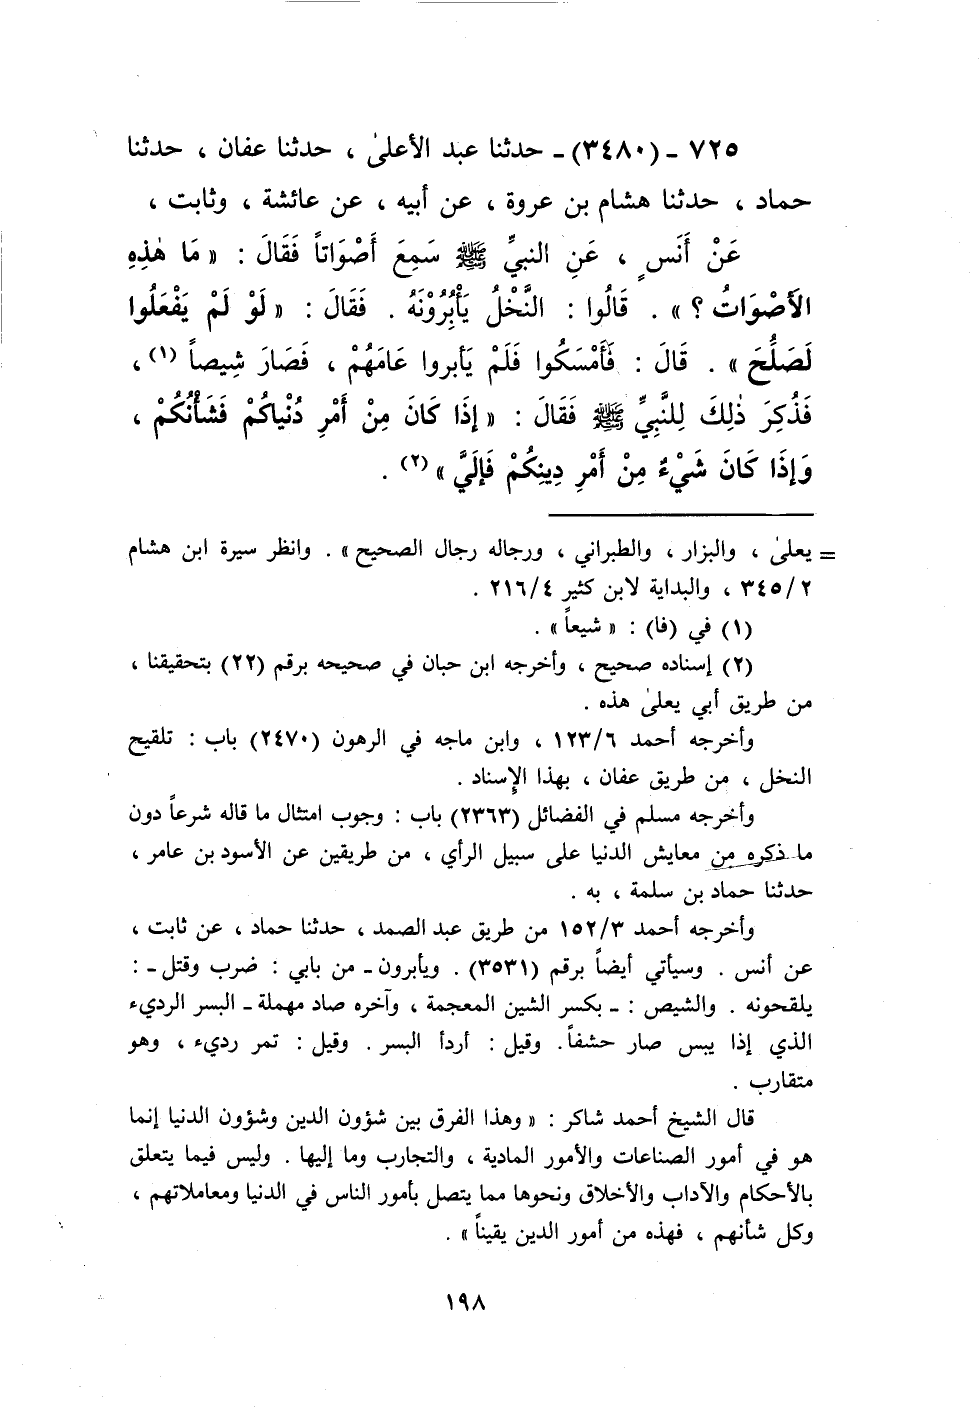 ٧٢٥ - (٣٤٨٠) - حدثنا عبد الأعلىٰ ، حدثنا عفان ، حدثنا
حماد ، حدثنا هشام بن عروة ، عن أبيه ، عن عائشة ، وثابت ،
عَنْ أَنَسٍ ، عَنِ النبيِّ ﷺ سَمِعَ أَصْوَاتاً فَقَالَ : « مَا هٰذِهِ
الأَصْوَاتُ ؟ » . قَالُوا : النَّخْلُ يَأْبُرُوْنَهُ . فَقَالَ : « لَوْ لَمْ يَفْعَلُوا
لَصَلُحَ » . قَالَ : فَأَمْسَكُوا فَلَمْ يَأبروا عَامَهُمْ ، فَصَارَ شِيصاً (١) ،
فَذُكِرَ ذٰلِكَ لِلنَّبِيِّ ﷺ فَقَالَ : « إذَا كَانَ مِنْ أَمْرِ دُنْياكُمْ فَشَأْنُكُمْ ،
وَإذَا كَانَ شَيْءٌ مِنْ أَمْرِ دِينِكُمْ فَإِلَيَّ » (٢) .
= يعلىٰ ، والبزار ، والطبراني ، ورجاله رجال الصحيح » . وانظر سيرة ابن هشام
٣٤٥/٢ ، والبداية لابن كثير ٢١٦/٤ .
(١) في (فا) : « شيعاً » .
(٢) إسناده صحيح ، وأخرجه ابن حبان في صحيحه برقم (٢٢) بتحقيقنا ،
من طريق أبي يعلىٰ هذه .
وأخرجه أحمد ١٢٣/٦ ، وابن ماجه في الرهون (٢٤٧٠) باب : تلقيح
النخل ، من طريق عفان ، بهذا الإسناد .
وأخرجه مسلم في الفضائل (٢٣٦٣) باب : وجوب امتثال ما قاله شرعاً دون
ما ذكره من معايش الدنيا على سبيل الرأي ، من طريقين عن الأسود بن عامر ،
حدثنا حماد بن سلمة ، به .
وأخرجه أحمد ١٥٢/٣ من طريق عبد الصمد ، حدثنا حماد ، عن ثابت ،
عن أنس . وسيأتي أيضاً برقم (٣٥٣١) . ويأبرون - من بابي : ضرب وقتل - :
يلقحونه . والشيص : - بكسر الشين المعجمة ، وآخره صاد مهملة - البسر الرديء
الذي إذا يبس صار حشفاً . وقيل : أردأ البسر . وقيل : تمر رديء ، وهو
متقارب .
قال الشيخ أحمد شاكر : « وهذا الفرق بين شؤون الدين وشؤون الدنيا إنما
هو في أمور الصناعات والأمور المادية ، والتجارب وما إليها . وليس فيما يتعلق
بالأحكام والآداب والأخلاق ونحوها مما يتصل بأمور الناس في الدنيا ومعاملاتهم ،
وكل شأنهم ، فهذه من أمور الدين يقيناً » .
١٩٨